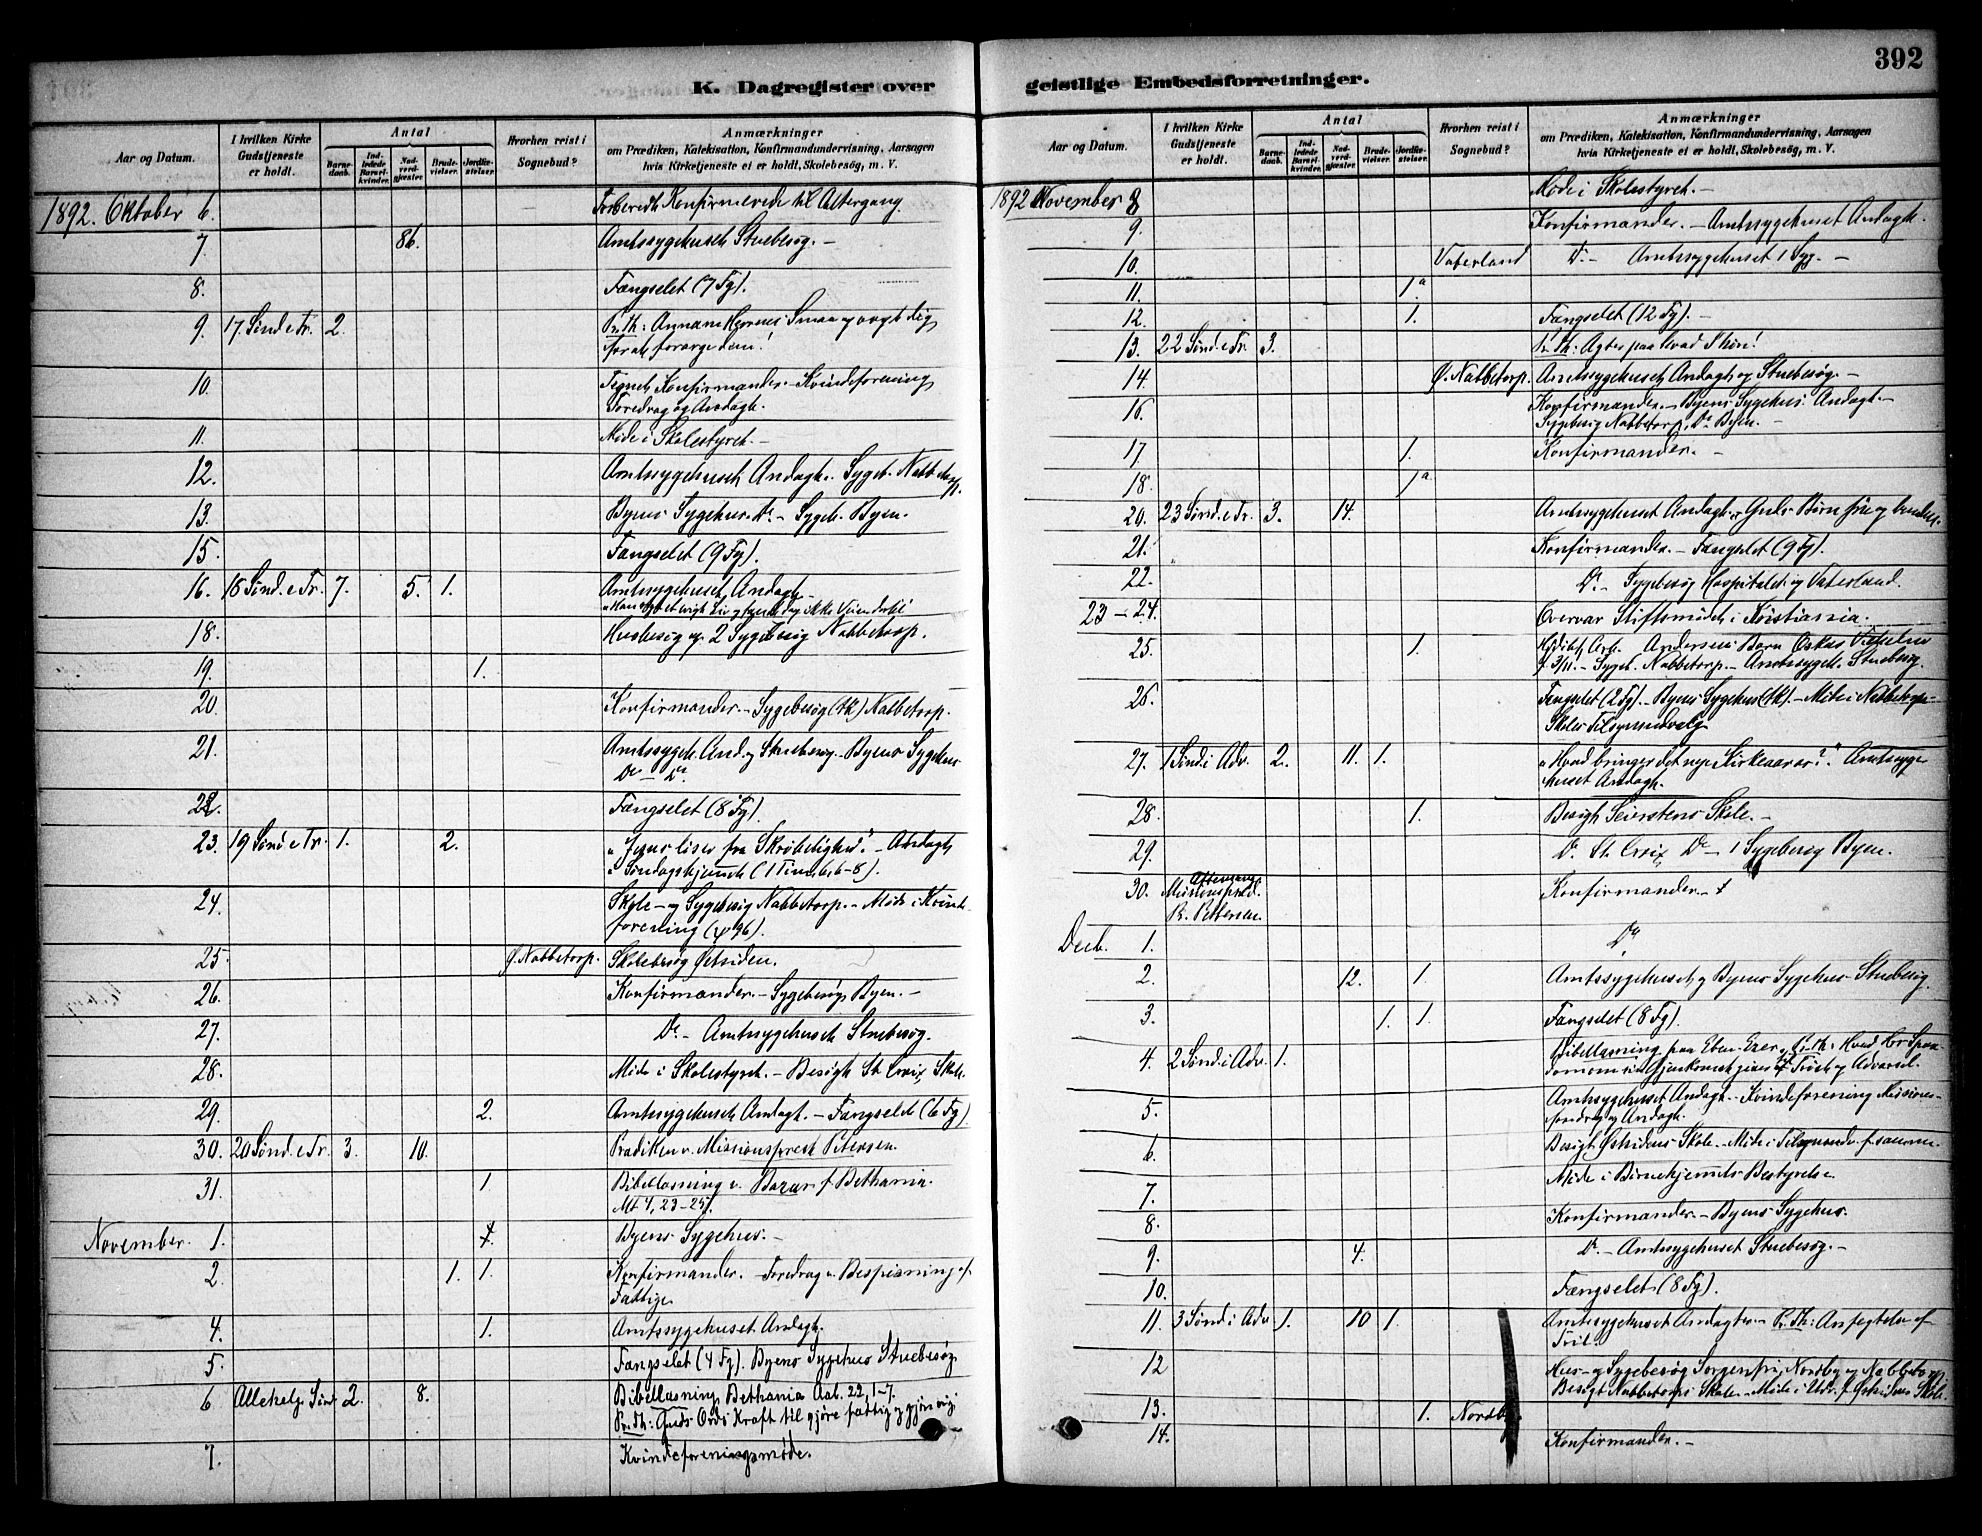 392
K. Dagregister over
geistlige Embedsforretninger.
Aar og Datum.
I hvilken Kirke Gudstjeneste er holdt.
Antal
Barnedaab.
Indledede Barselkvinder.
Nadverdgjæster.
Brudevielser.
Jordfæstelser.
Hvorhen reist i Sognebud?
Anmærkninger
om Prædiken, Katekisation, Konfirmandundervisning, Aarsagen
hvis Kirketjeneste ei er holdt, Skolebesøg, m. V.
1892. Oktober 6. Forberedte Konfirmerede til Altergang.
7. 86. Amtssygehuset Stuebesøg. -
8. Fængselet (7 Fg).
9. 17 Sønd e Tr. 2. Pr. Th:
for at forarge dem!
10. Konfirmander. - Kvindeforening
Foredrag og Andagt.
11. Møde i Skolestyret. -
12. Amtssygehuset Andagt. Sygeb. Nabbetorp.
13. Byens Sygehus Do - Sygeb. Byen. -
15. Fængselet (9 Fg).
16. 18 Sønd. e Tr. 7. 5. 1. Amtssygehuset Andagt. -
18. Husbesøg og 2 Sygebesøg Nabbetorp.
19. 1.
20. Konfirmander. - Sygebesøg (tk) Nabbetorp.
21. Amtssygeh. And. og Stuebesøg. - Byens Sygehus
Do - Do.
22. Fængselet (8 Fg).
23. 19 Sønd e Tr. 1. 2. „Jesus løser fra Skrøbelighed." - Andagt
i Søndagshjemmet (1 Tim. 6, 6-8).
24. Skole- og Sygebesøg Nabbetorp. - Møde i Kvinde-
forening
25. Ø. Nabbetorp. Skolebesøg Østsiden.
26. Konfirmander. - Sygebesøg Byen. -
27. Do - Amtssygehuset Stuebesøg.
28. Møde i Skolestyret. - Besøgt St. Croix Skole.
29. 2. Amtssygehuset Andagt. - Fængselet (6 Fg)
30. 20 Sønd. e Tr. 3. 10. Prædiken v. Missionsprest Petersen.
31. 1. Bibellæsning v. Bazar f. Bethania.
Mt 4, 23-25.
November. 1. Byens Sygehus. -
2. 1. 1. Konfirmander. - Foredrag v. Bespisning af
Fattige
4. 1. Amtssygehuset Andagt.
5. Fængselet (4 Fg). Byens Sygehus Stuebesøg
6 Allehelg. Sønd 2. 8. Bibellæsning Bethania Aab. 22, 1-7.
Pr. Th: Guds Ords Kraft til gjøre fattig og gjøre rig
7. Kvindeforeningsmøde.
Aar og Datum.
I hvilken Kirke Gudstjeneste er holdt.
Antal
Barnedaab.
Indledede Barselkvinder.
Nadverdgjæster.
Brudevielser.
Jordfæstelser.
Hvorhen reist i Sognebud?
Anmærkninger
om Prædiken, Katekisation, Konfirmandundervisning, Aarsagen
hvis Kirketjeneste ei er holdt, Skolebesøg, m. V.
1892 November 8 Møde i Skolestyret. -
9. Konfirmander. - Amtssygehuset Andagt.
10. Vaterland Do - Amtssygehuset 1 Syg. -
11. 1a
12. 1. Fængselet (12 Fg). -
13. 22 Sønd. e Tr. 3. Pr. Th: Agter paa hvad I høre!
14. Ø. Nabbetorp. Amtssygehuset Andagt og Stuebesøg. -
16. Konfirmander. - Byens Sygehus Andagt. -
Sygebesøg Nabbetorp, Do Byen. -
17. 1. Konfirmander. -
18. 1a
20. 23 Sønd. e Tr. 3. 14. Amtssygehuset Andagt. Guds Børn frie og bundne.
21. Konfirmander. - Fængselet (9 Fg).
22. Do - Sygebesøg Hospitalet og Vaterland.
23 - 24. Overvar Stiftsmødet i Kristiania.
25. 1. Andersens Barn Oskar Vilhelm
f. 3/11. - Sygeb. Nabbetorp. - Amtssygeh. Stuebesøg.
26. Fængselet (2 Fg). - Byens Sygehus (tk). - Møde i Nabbetorp
Skoles Tilsynsudvalg
27. 1 Sønd i Adv. 2. 11. 1. „Hvad bringer det nye Kirkeaar os?" Amtssyge
huset Andagt.
28. 1. Besøgt Seierstens Skole. -
29. Do. St. Croix Do - 1 Sygebesøg Byen.
30. Aftensang Missionspræd. R. Petersen Konfirmander. -
Decb. 1. Do
2. 12. 1. Amtssygehuset og Byens Sygehus Stuebesøg
3. 1. 1. Fængselet (8 Fg).
4. 2 Sønd i Adv. 1. Bibellæsning paa Eben-Ezer, Pr. Th:
Trøst og Advarsel.
5. Amtssygehuset Andagt. - Kvindeforening Missions-
foredrag og Andagt.
6. Besøgt Østsidens Skole. - Møde i Tilsynsudv. f. samme.
7. Møde i Børnehjemmets Bestyrelse.
8. Konfirmander. - Byens Sygehus.
9. 4. Do - Amtssygehuset Stuebesøg. -
10. Fængselet (8 Fg).
11. 3 Sønd i Adv. 1. 10 1. Amtssygehuset Andagt. - Pr. Th: Anfægtelse af
Tvil.
12 Hus- og Sygebesøg Sorgenfri, Nordby og Nabbetorp.
Besøgt Nabbetorps Skole. - Møde i Udv. f. Østsidens Skole.
13. 1. Nordby.
14. Konfirmander. -